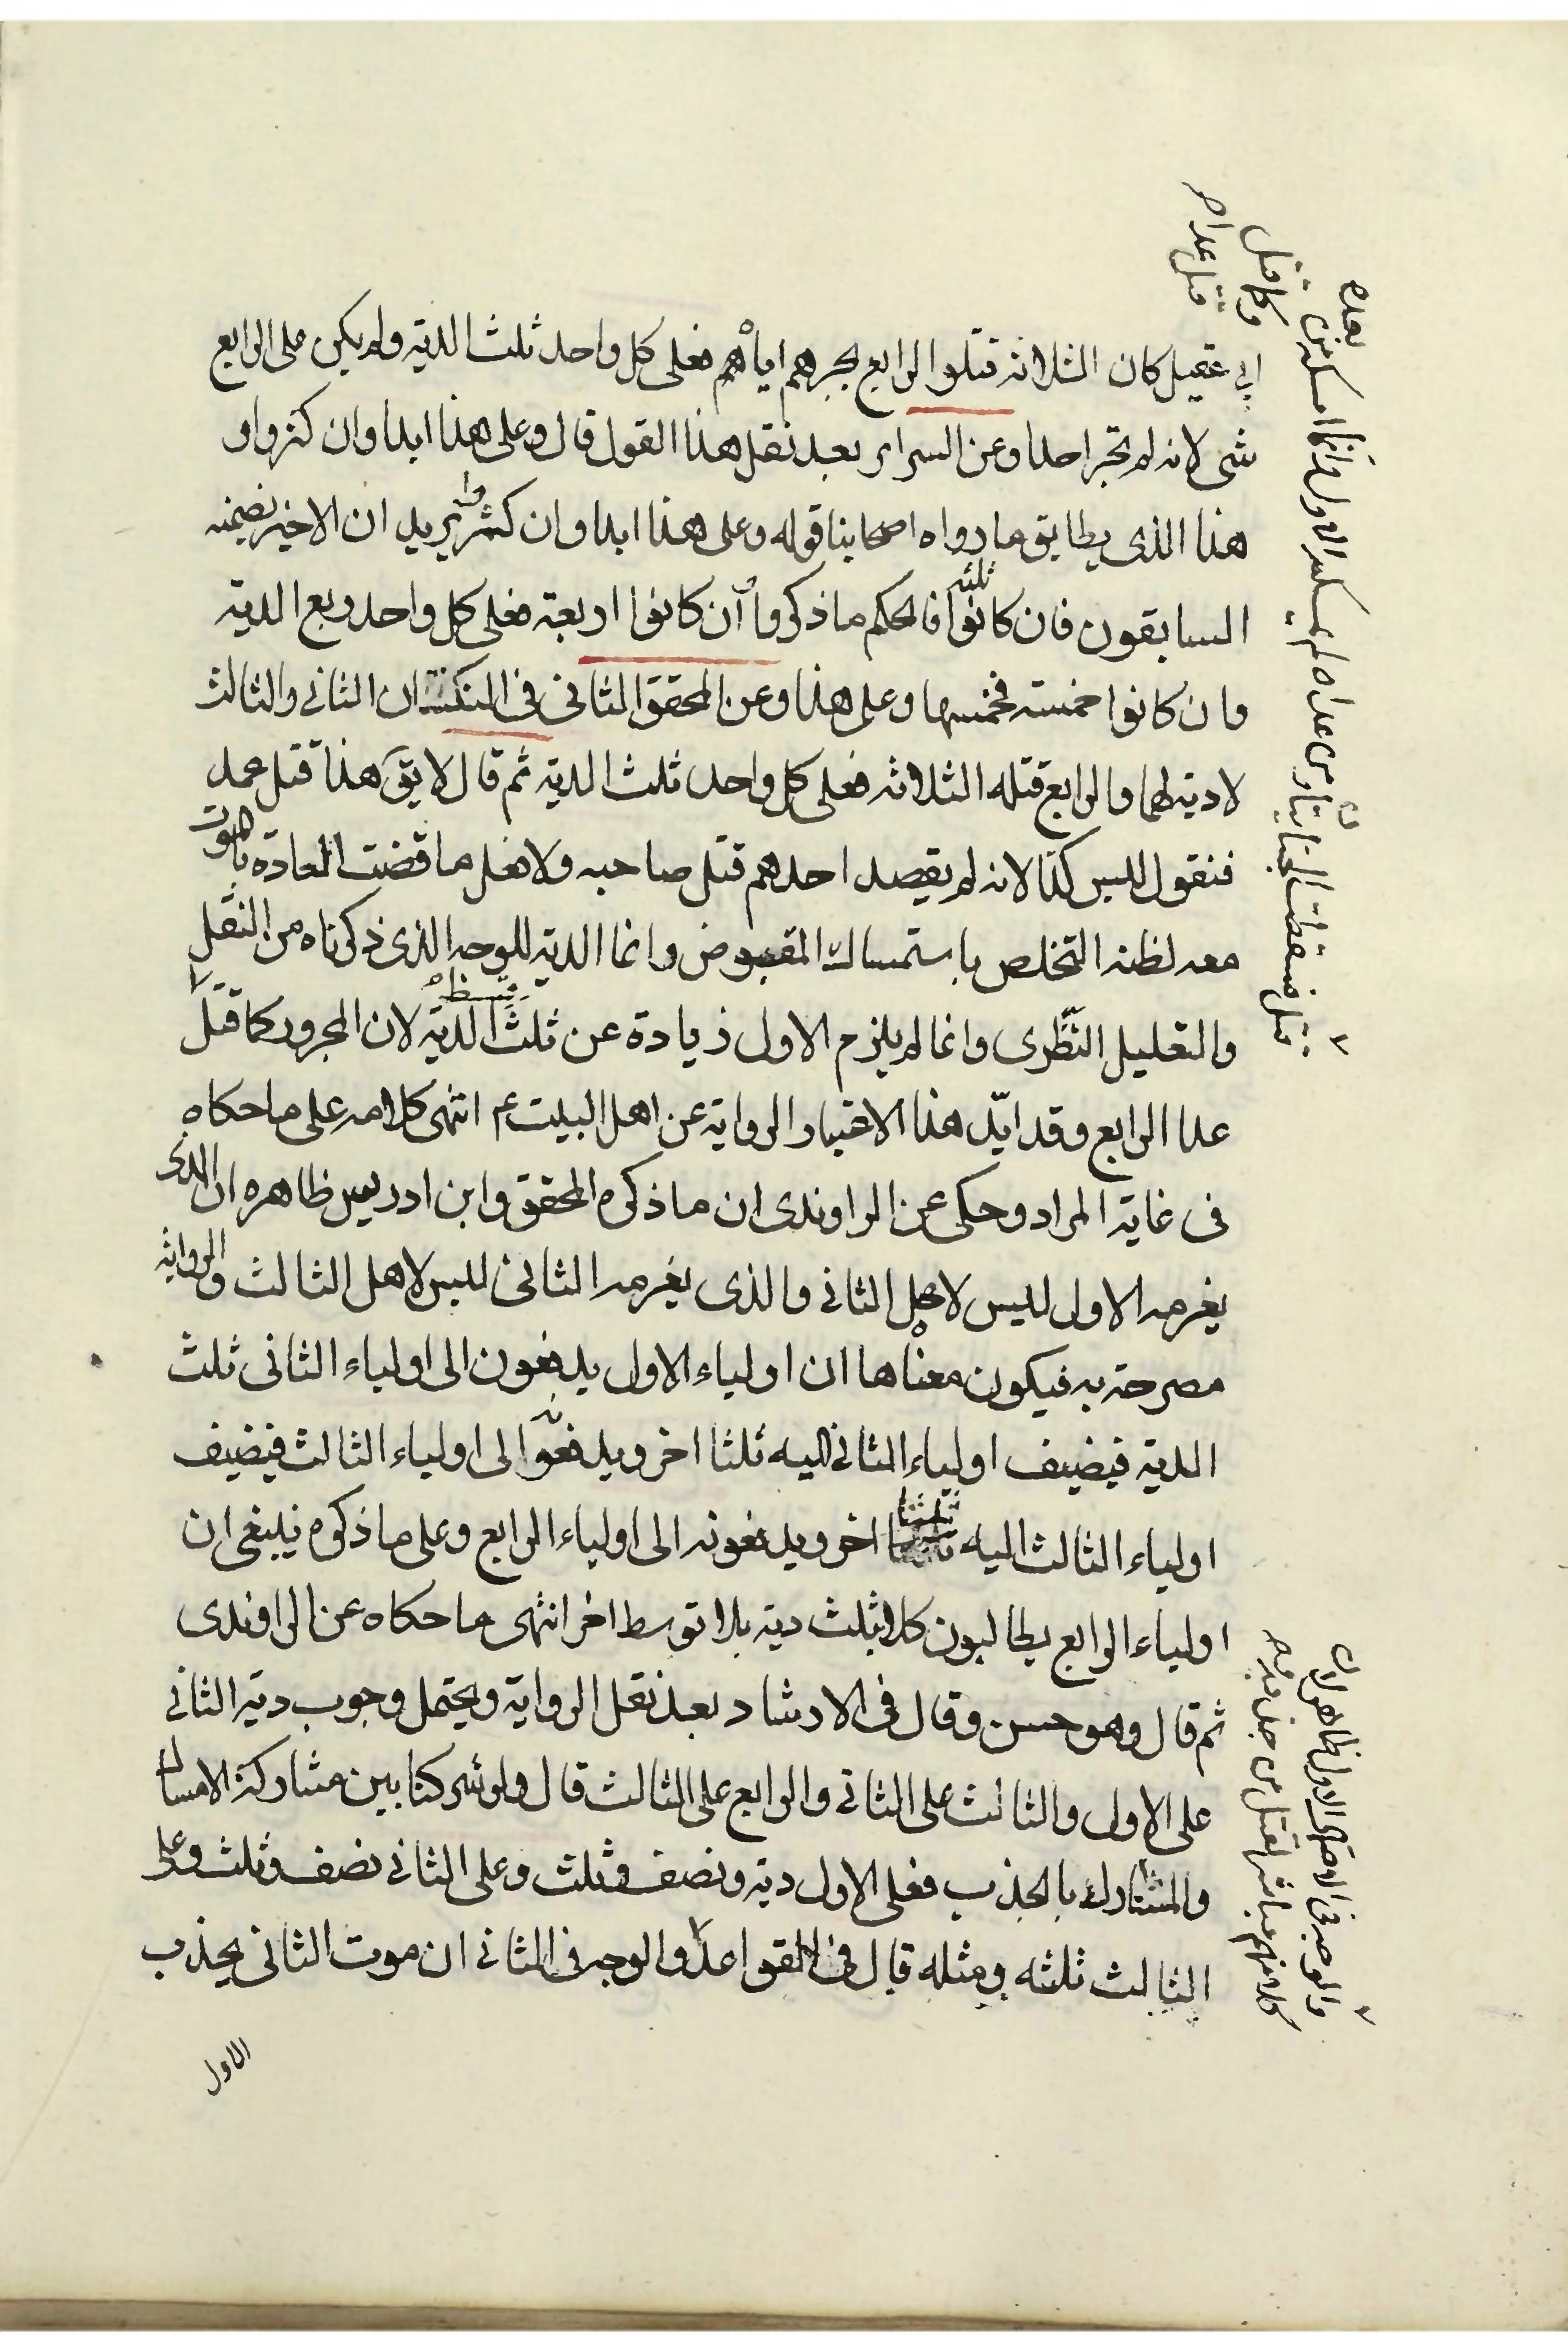 ابي عقيل كان الثلاثه قتلوا الرابع بجرهم اياهم فعلى كل واحد ثلث الدية ولم يكن على الرابع
شى لانه لم يجر احدا وعن السراير بعد نقل هذا القول قال وعلى هذا ابدا وان كثروا و
هذا الذى يطابق ما رواه اصحابنا قوله وعلى هذا ابدا وان كثروا يريد ان الاخير نضمنه
السابقون فان كانوا ثلثه فالحكم ما ذكر وان كانوا اربعة فعلى كل واحد ربع الدية
وان كانوا خمسته فخمسها وعلى هذا وعن المحقق الثانى فى النكت ان الثانى والثالث
لادية لهما والرابع قتله الثلاثه فعلى كل واحد ثلث الدية ثم قال لايق هذا قتل عمد
فنقول ليس كذا لانه لم يقصد احدهم قتل صاحبه ولا فعل ما قضت العادة بالموت
معه لظنه التخلص باستمساك المقبوض وانما الدية للوجه الذى ذكرناه من النقل
والتعليل النظرى وانما لم يلزم الاول زيادة عن ثلث الدية لان المجرور كما قتل
عدا الرابع وقد ايد هذا الاختيار الرواية عن اهل البيت ع انتهى كلامه على ما حكاه
فى غاية المراد وحكى عن الراوندى ان ما ذكره المحقق وابن ادريس ظاهره ان الذى
يغرمه الاول ليس لاهل الثانى والذى يغرمه الثانى ليس لاهل الثالث والرواية
مصرحة به فيكون معناها ان اولياء الاول يدفعون الى اولياء الثانى ثلث
الدية فيضيف اولياء الثانى اليه ثلثا اخر ويدفعونه الى اولياء الثالث فيضيف
اولياء الثالث اليه ثلثا اخر ويدفعونه الى اولياء الرابع وعلى ما ذكروه ينبغى ان
اولياء الرابع يطالبون كلا بثلث دية بلا توسط اخر انتهى ما حكاه عن الراوندى
ثم قال وهو حسن وقال فى الارشاد بعد نقل الرواية ويحتمل وجوب دية الثانى
على الاول والثالث على الثانى والرابع على الثالث قال ولو شركنا بين مشاركة الامساك
والمشارك بالجذب فعلى الاول دية ونصف وثلث وعلى الثانى نصف وثلث وعلى
الثالث ثلثه ومثله قال فى القواعد والوجه فى الثانى ان موت الثانى بجذب
الاول